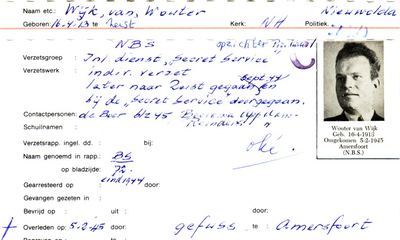 Naam etc.: Wijk, van, Wouter Nieuwolda
Geboren: 16-4-13 te Zeist Kerk: NH Politiek
NBS opzichter
Verzetsgroep : Inl. dienst, Secret Service
Verzetswerk : indir. verzet sept 44
later naar Zeist gegaan en
bij de „Secret Service" doorgegaan.
Contactpersonen: de Boer
Schuilnaam :
Verzetsrapp. ingel. dd. : bij: oké.
Naam genoemd in rapp.: BS
op bladzijde:
eind 1944
Gearresteerd op : door:
Gevangen gezeten in :
Bevrijd op : uit : door:
Overleden op: 5-2-'45 door: gefuss. te : Amersfoort
Wouter van Wijk
Geb. 16-4-1913
Omgekomen 5-2-1945
Amersfoort
(N.B.S.)